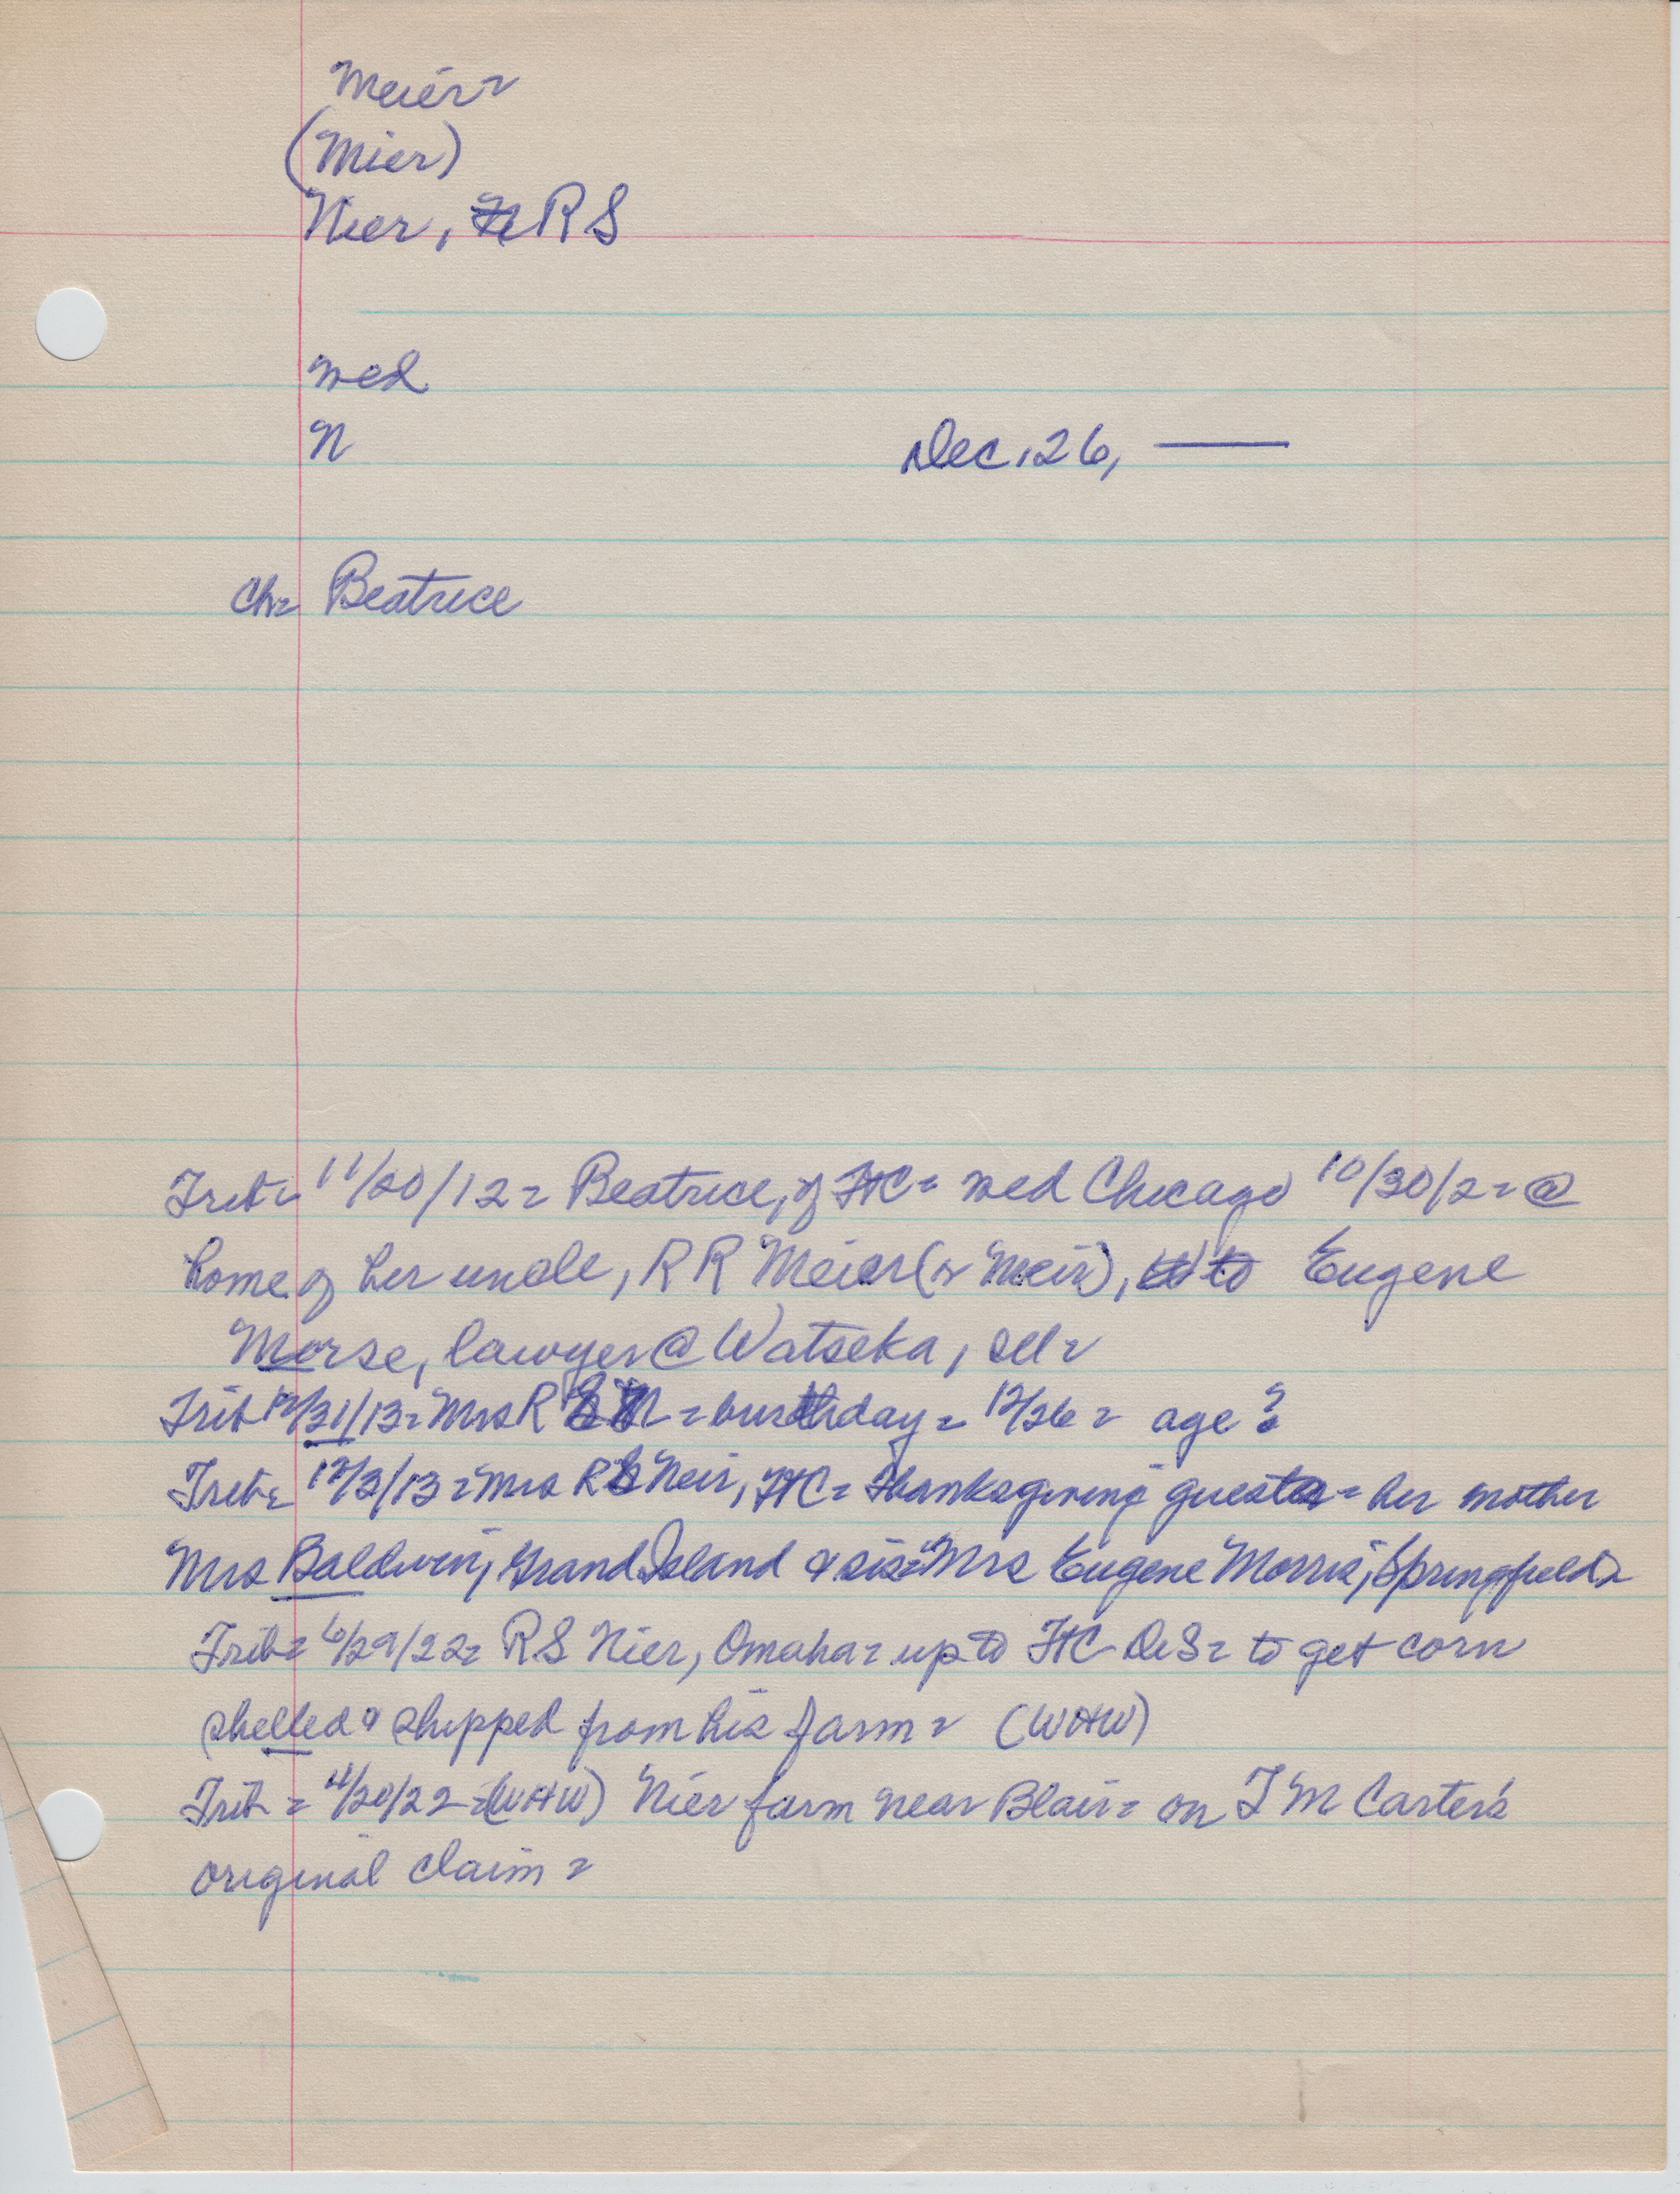 Meier=
(Mier)
Nier, RS
wed
N Dec. 26, ——
Ch= Beatrice
Trib= 11/20/12= Beatrice, of FtC= wed Chicago 10/30/12= @
home of her uncle, RR Meier (or Meir), to Eugene
Morse, lawyer @ Watseka, Ill=
Trib 12/31/13= Mrs R S N = birthday = 12/26 = age?
Trib= 12/3/13= Mrs RS Neir, FtC= Thanksgiving guests= her mother
Mrs Baldwin, Grand Island & sis= Mrs Eugene Morris, Springfield=
Trib= 6/29/22= RS Nier, Omaha= up to FtC DeS= to get corn
shelled & shipped from his farm= (WHW)
Trib = /20/22=(WHW) Nier farm near Blair= on T M Carter's
original claim=